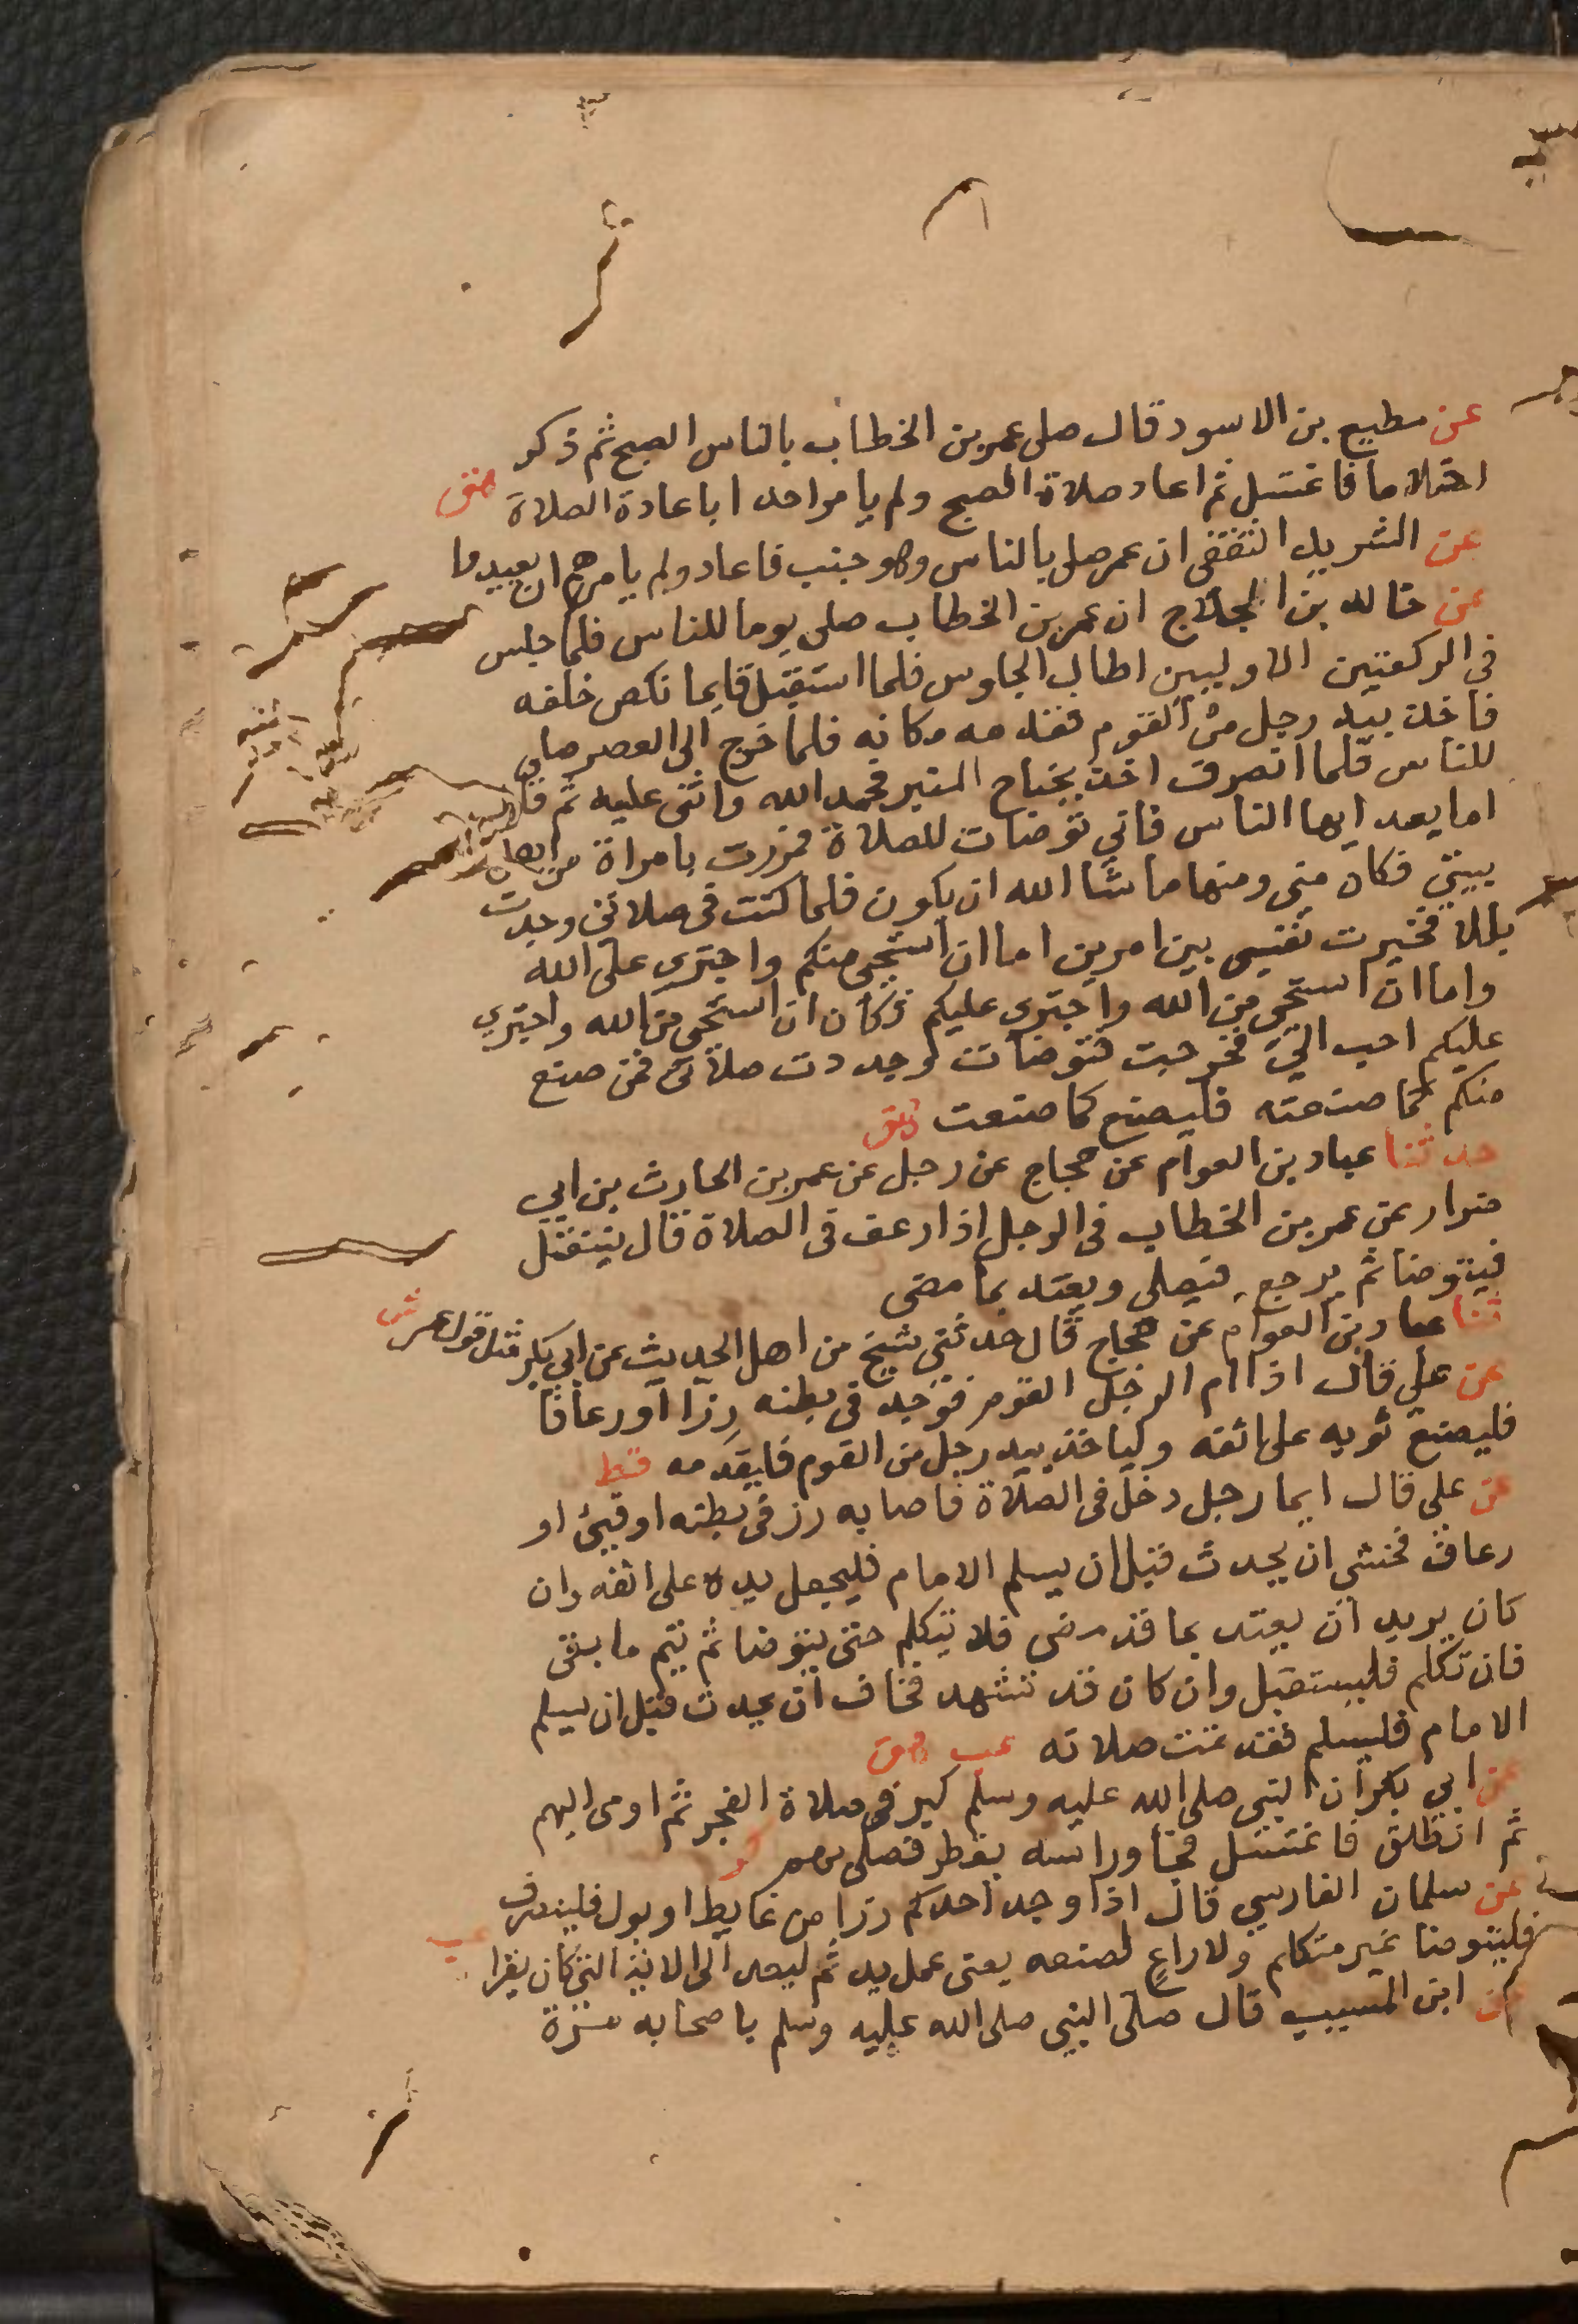 عن مطيع بن الاسود قال صلى عمر بن الخطاب بالناس الصبح ثم ذكر
احتلاما فاغتسل ثم اعاد صلاة الصبح ولم يامر احدا باعادة الصلاة هق
عن الشريد الثقفي ان عمر صلى بالناس وهو جنب فاعاد ولم يامرهم ان يعيدوا
عن خالد بن اللجلاج ان عمر بن الخطاب صلى يوما للناس فلما جلس
في الركعتين الاوليين اطال الجلوس فلما استقبل قايما نكص خلفه
فاخذ بيد رجل من القوم فقدمه مكانه فلما خرج الى العصر صلى
للناس فلما انصرف اخذ بجناح المنبر فحمد الله واثنى عليه ثم قال
اما بعد ايها الناس فاني توضات للصلاة فمررت بامراة من اهل
بيتي فكان مني ومنها ما شا الله ان يكون فلما كنت في صلاتي وجدت
بللا فخيرت نفسي بين امرين اما ان استحي منكم واجتري على الله
واما ان استحي من الله واجتري عليكم فكان ان استحي من الله واجتري
عليكم احب الي فخرجت فتوضات وجددت صلاتي فمن صنع
منكم كما صنعته فليصنع كما صنعت هق
حدثنا عباد بن العوام عن حجاج عن رجل عن عمر بن الحارث بن ابي
ضرار عن عمر بن الخطاب في الرجل اذا رعف في الصلاة قال ينفتل
فيتوضا ثم يرجع فيصلي ويعتد بما مضى
ثنا عباد بن العوام عن حجاج قال حدثني شيخ من اهل الحديث عن ابي بكر مثل قول عمر ش
عن علي قال اذا ام الرجل القوم فوجد في بطنه رزا او رعافا
فليضع ثوبه على انفه ولياخذ بيد رجل من القوم فليقدمه قط
عن علي قال ايما رجل دخل في الصلاة فاصابه رز في بطنه او قيئ او
رعاف فخشي ان يحدث قبل ان يسلم الامام فليجعل يده على انفه وان
كان يريد ان يعتد بما قد مضى فلا يتكلم حتى يتوضا ثم يتم ما بقي
فان تكلم فليستقبل وان كان قد تشهد فخاف ان يحدث قبل ان يسلم
الامام فليسلم فقد تمت صلاته عب هق
عن ابي بكر ان النبي صلى الله عليه وسلم كبر في صلاة الفجر ثم اومى اليهم
ثم انطلق فاغتسل فجا وراسه يقطر فصلى بهم كر
عن سلمان الفارسي قال اذا وجد احدكم رزا من غايط او بول فلينصرف
فليتوضا غير متكلم ولا راع لصنعه يعني عمل يد ثم ليعد الى الاية التي كان يقرا عب
عن ابن المسيب قال صلى النبي صلى الله عليه وسلم باصحابه مرة